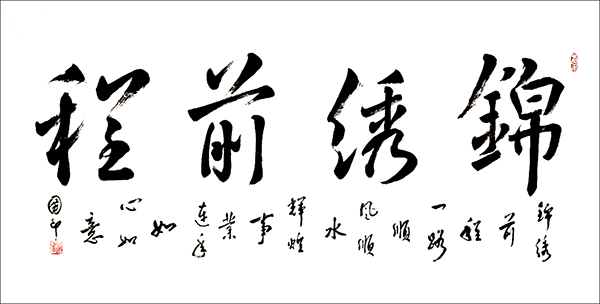 錦绣前程
錦绣前程一路順風順水輝煌事業連年如心如意